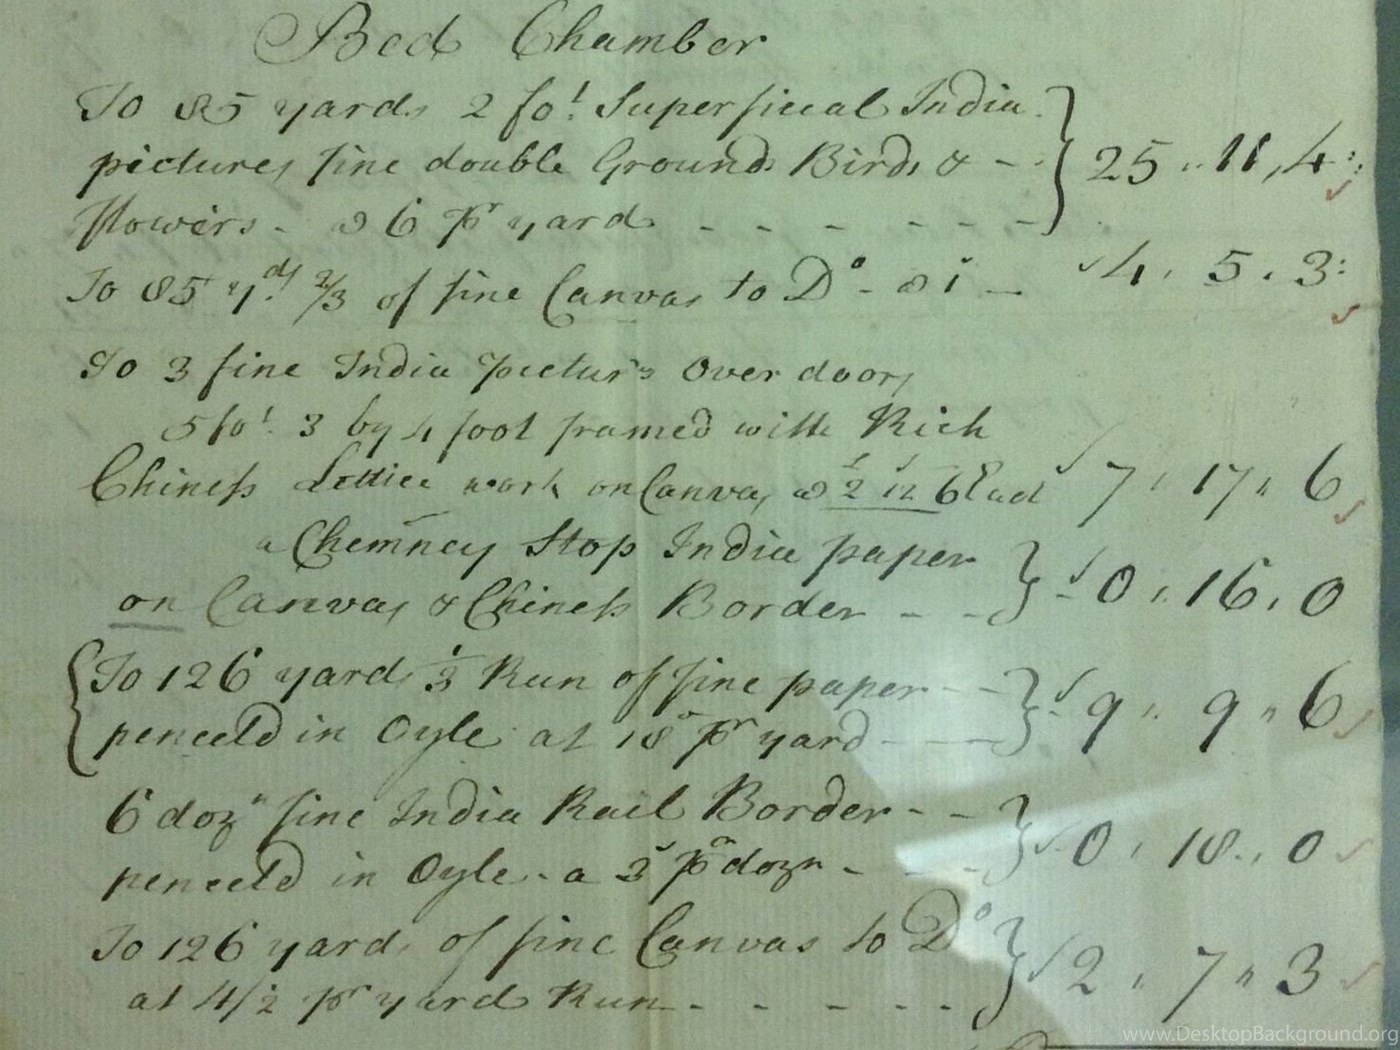 Bed Chamber
To 85 yards 2 fot Superficial India
pictures fine double Ground Birds & - - } 25 " 11 , 4
flowers - a 6 pr yard - - - - - -
To 85 yds 2/3 of fine Canvas to Do - a 1 - 4 , 5 , 3
To 3 fine India pictur's Over doors
5 fot 3 by 4 foot framed with Rich
Chiness Lettice work on Canvas a 2 12 6 Ead 7 , 17 " 6
a Chemney Stop India paper
on Canvas & Chiness Border - - } 0 , 16 , 0
{ To 126 yards 1/3 Run of fine paper - -
penceld in Oyle at 18 pr yard - - } 9 " 9 " 6
6 dozn fine India Rail Border - -
penceld in Oyle - a 3 pr dozn - } 0 , 18 , 0
To 126 yards of fine Canvas to Do
at 4/2 pr yard Run - - - - - } 2 " 7 " 3
www.DesktopBackground.org